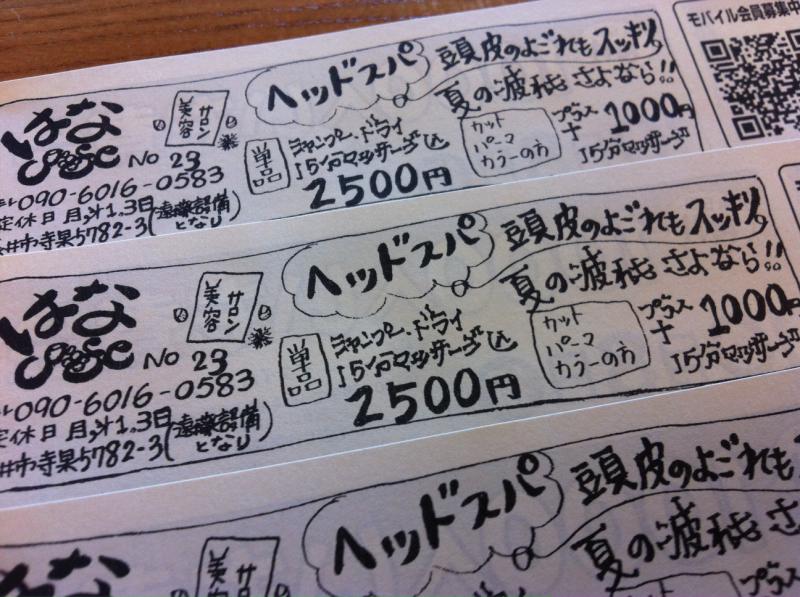 モバイル会員募集中
ヘッドスパ
頭皮のよごれもスッキリ
夏の疲れも さよなら!!
はな
美容
サロン
No 23
単品
シャンプー、ドライ
15分マッサージ込
2500円
カット
パーマ
カラーの方
プラス
+ 1000円
15分マッサージ
090-6016-0583
定休日 月,第1.3日
井市寺果5782-3
(遠藤設備
となり)
ヘッドスパ
頭皮のよごれもスッキリ
夏の疲れも さよなら!!
はな
美容
サロン
No 23
単品
シャンプー、ドライ
15分マッサージ込
2500円
カット
パーマ
カラーの方
プラス
+ 1000円
15分マッサージ
090-6016-0583
定休日 月,第1.3日
井市寺果5782-3
(遠藤設備
となり)
ヘッドスパ
頭皮のよごれも
夏の疲れも さ
美容
サロン